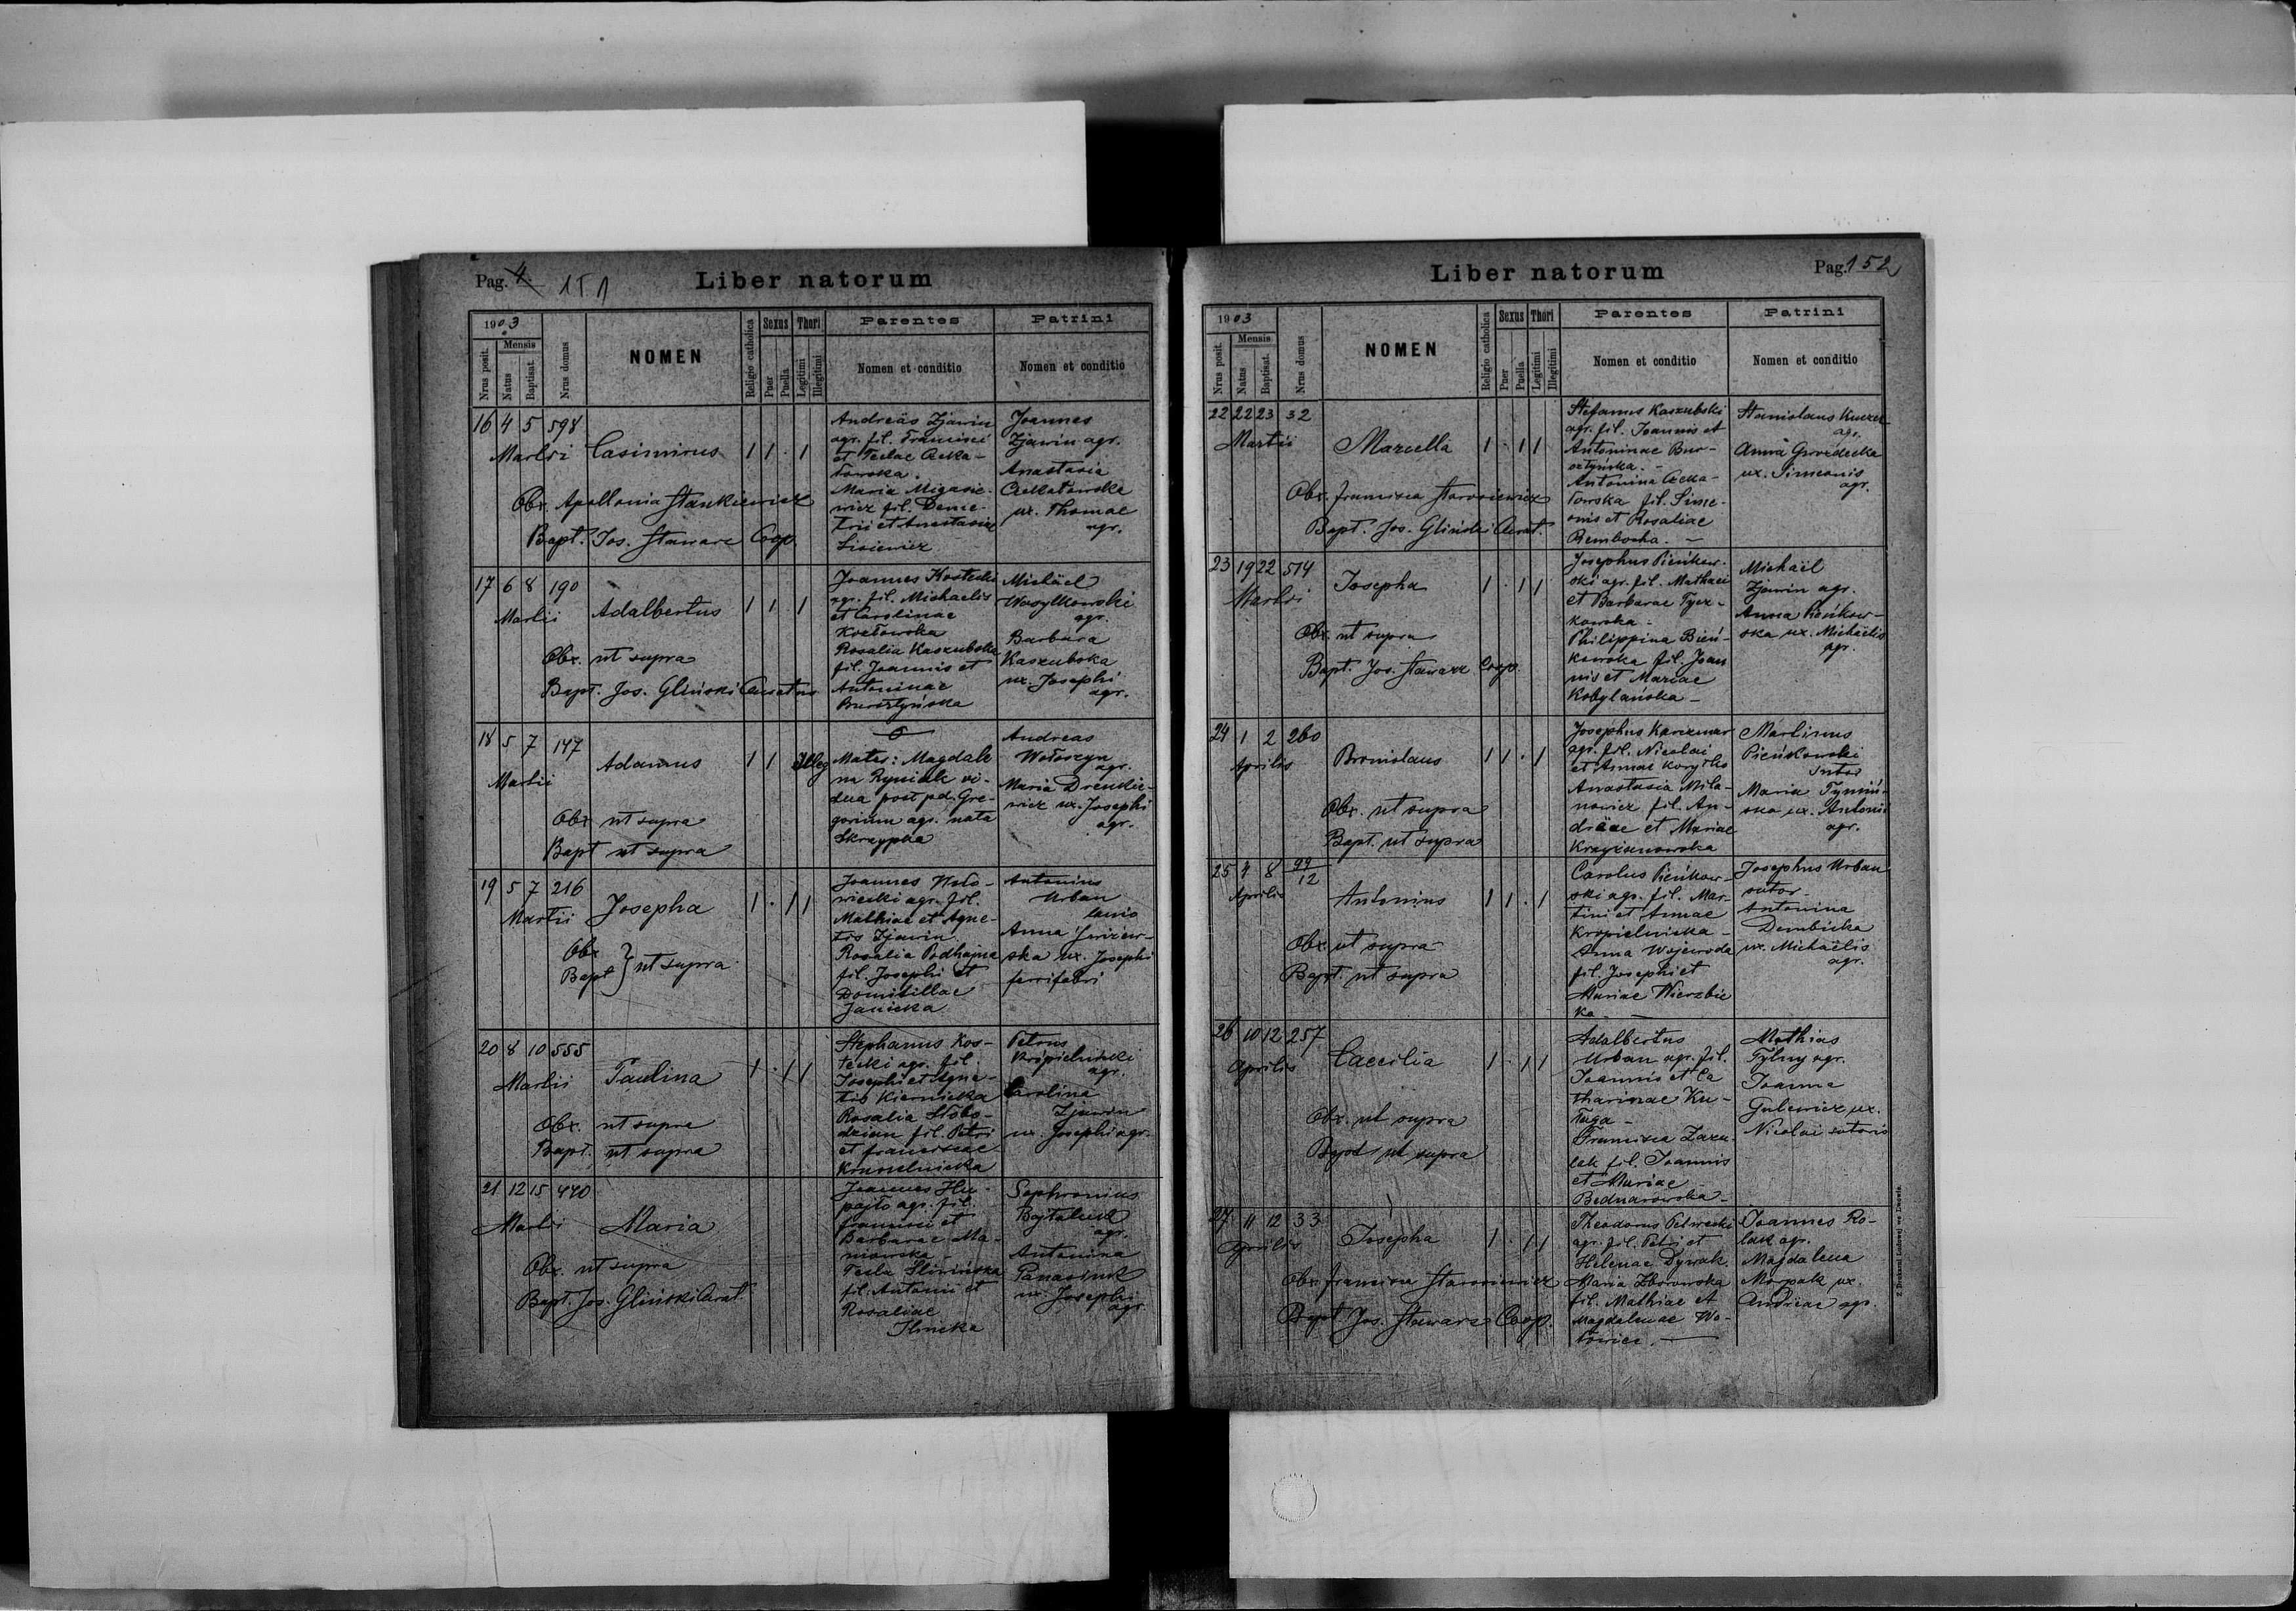 Pag. 4 151
Liber natorum
1903
Nrus posit.
Mensis
Natus
Baptisat.
Nrus domus
NOMEN
Religio catholica
Sexus
Puer
Puella
Thori
Legitimi
Illegitimi
Parentes
Nomen et conditio
Patrini
Nomen et conditio
16 4 5 598
Martii Casimirus 1 1 . 1
Obx. Apollonia Stankiewicz
Bapt. Jos. Stawarz Coop.
Andreäs Zjawin
agr. fil. Francisci
et Teclae Czeka-
łowska.
Maria Migasie-
wicz fil. Deme-
trii et Anastasiae
Lisiewicz
Joannes
Zjawin agr.
Anastasia
Czekałowska
ux. Thomae
agr.
17 6 8 190
Martii Adalbertus 1 1 . 1
Obx. ut supra
Bapt. Jos. Gliński Curatus
Joannes Kostecki
agr. fil. Michaelis
et Carolinae
Rosalia Kaszubska
fil. Joannis et
Antoninae
Bursztyńska
Michäel
Wasylkowski
agr.
Barbara
Kaszubska
ux. Josephi
agr.
18 5 7 147
Martii Adamus 1 1 Illeg
Obx ut supra
Bapt ut supra
Mater: Magdale
na Ryniak vi-
dua post pd. Gre-
gorium agr. nata
Skrzypka
Andreas
Wołoszyn
agr.
Maria
ux. Josephi
agr.
19 5 7 216
Martii Josepha 1 . 1 1
Obx
Bapt } ut supra
Joannes Woło-
wiecki agr. fil.
Mathiae et Agne-
tis Zjawin
Rosalia Podhajna
fil. Josephi et
Domitillae
Janicka
Antonius
Urban
lanio
Anna
ska ux. Josephi
ferrifabri
20 8 10 555
Martii Paulina 1 . 1 1
Obx. ut supra
Bapt. ut supra
Stephanus Kos-
tecki agr. fil.
Josephi et Agne-
tis Kiernicka
Rosalia Słobo-
dzian fil. Petri
et Franciscae
Kruszelnicka
Petrus
Kropielnicki
agr.
Carolina
Zjawin
ux. Josephi agr.
21 12 15 440
Martii Maria
Obx. ut supra
Bapt. Jos. Gliński Curat.
Joannes Hu-
pajło agr. fil.
Francisci et
Barbarae Ma-
niowska -
Tecla Śliwińska
fil. Antonii et
Rosaliae
Ilnicka
Sophronius
Bojtaluk
agr.
Antonina
Panasiuk
ux. Josephi
agr.
Liber natorum
Pag. 152
1903
Nrus posit.
Mensis
Natus
Baptisat.
Nrus domus
NOMEN
Religio catholica
Sexus
Puer
Puella
Thori
Legitimi
Illegitimi
Parentes
Nomen et conditio
Patrini
Nomen et conditio
22 22 23 32
Martii Marcella 1 . 1 1
Obx. Francisca Starosiewicz
Bapt. Jos. Gliński Curat.
Stefanus Kaszubski
agr. fil. Joannis et
Antoninae Bur-
sztyńska. -
Antonina Czeka-
łowska fil. Sime-
onis et Rosaliae
Rembocha. -
Stanislaus
agr.
Anna Gwozdecka
ux. Simeonis
agr.
23 19 22 514
Martii Josepha 1 . 1 1
Obx. ut supra
Bapt. Jos. Stawarz Coop.
Josephus Pieńkow-
ski agr. fil. Mathaei
et Barbarae Tycz-
kowska -
Philippina Bień-
kowska fil. Joan
nis et Mariae
Kobylańska -
Michaël
Zjawin agr.
Anna Pieńkow-
ska ux. Michäelis
agr.
24 1 2 260
Aprilis Bronislaus 1 1 . 1
Obx. ut supra
Bapt. ut supra
Josephus Karczmar
agr. fil. Nicolai
et Annae Korytko
Anastasia Mila-
nowicz fil. An-
dreae et Mariae
Krzyżanowska
Martinus
Pieńkowski
sutor
Maria Tymiń-
ska ux. Antonii
agr.
25 7 8 99/12
Aprilis Antonius 1 1 . 1
Obx. ut supra
Bapt. ut supra
Carolus Pieńkow-
ski agr. fil. Mar-
tini et Annae
Kropielnicka -
Anna Wojewoda
fil. Josephi et
Mariae Wierzbic
ka -
Josephus Urban
sutor -
Antonina
Dembicka
ux. Michaëlis
agr.
26 10 12 257
Aprilis Caecilia 1 . 1 1
Obx. ut supra
Bapt ut supra
Adalbertus
Urban agr. fil.
Joannis et Ca
tharinae Ku-
Francisca Zazu-
lak fil. Joannis
et Mariae
Bednarowska -
Mathias
Tylny agr.
Joanna
Gulewicz ux.
Nicolai sutoris
27 11 12 33
Aprilis Josepha 1 . 1 1
Obx. Francisca Starosiewicz
Bapt Jos. Stawarz Coop.
Theodorus Petrecki
agr. fil. Petri et
Helenae Dywak.
Maria Zborowska
fil. Mathiae et
Magdalenae Wo-
łowiec. -
Joannes Ro-
lak agr.
Magdalena
Marpak ux.
Andreae agr.
Z Drukarni Ludowej we Lwowie.